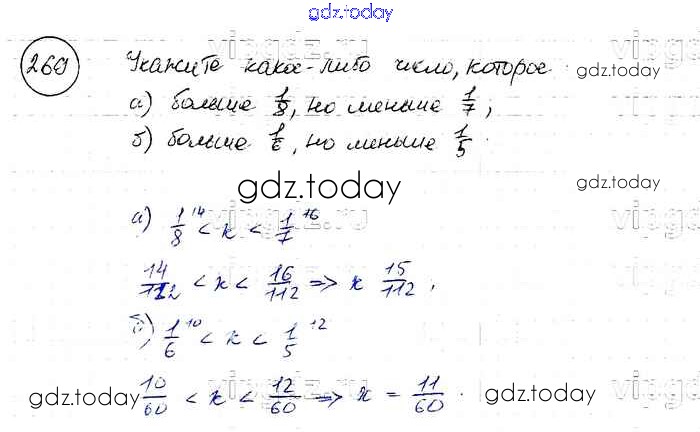 gdz.today
269 Укажите какое-либо число, которое
gdz.today
а) больше 1/8, но меньше 1/7;
б) больше 1/6, но меньше 1/5.
gdz.today
gdz.today
а) 1/8^14 < x < 1/7^16
14/112 < x < 16/112 => x 15/112;
б) 1/6^10 < x < 1/5^12
10/60 < x < 12/60 => x = 11/60.
gdz.today
gdz.today